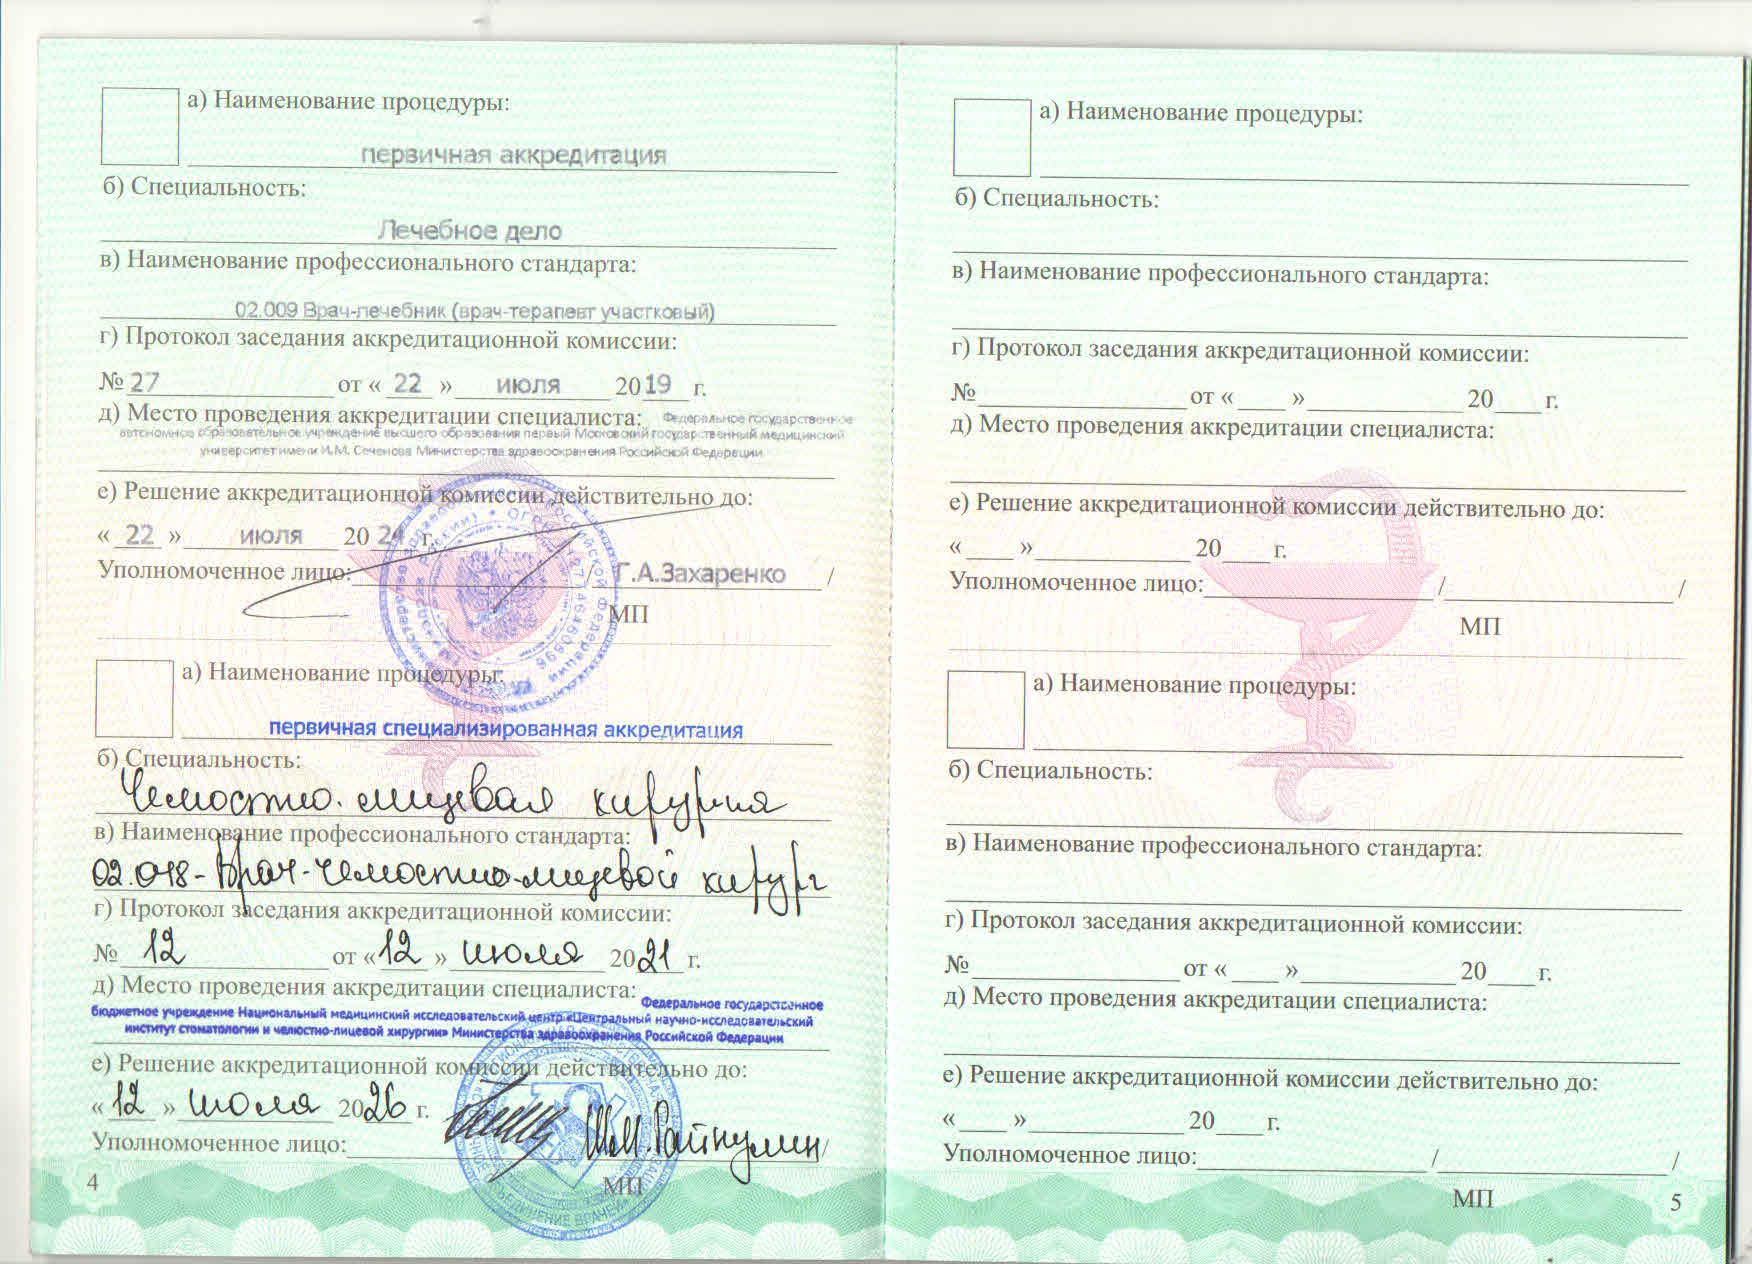 а) Наименование процедуры:
первичная аккредитация
б) Специальность:
Лечебное дело
в) Наименование профессионального стандарта:
02.009 Врач-лечебник (врач-терапевт участковый)
г) Протокол заседания аккредитационной комиссии:
№ 27 от « 22 » июля 2019 г.
д) Место проведения аккредитации специалиста: Федеральное государственное
автономное образовательное учреждение высшего образования первый Московский государственный медицинский
университет имени И.М. Сеченова Министерства здравоохранения Российской Федерации
е) Решение аккредитационной комиссии действительно до:
« 22 » июля 2024 г.
Уполномоченное лицо: / Г.А.Захаренко /
МП
а) Наименование процедуры:
первичная специализированная аккредитация
б) Специальность:
Челюстно-лицевая хирургия
в) Наименование профессионального стандарта:
02.018 - Врач-челюстно-лицевой хирург
г) Протокол заседания аккредитационной комиссии:
№ 12 от « 12 » июля 2021 г.
д) Место проведения аккредитации специалиста: Федеральное государственное
бюджетное учреждение Национальный медицинский исследовательский центр «Центральный научно-исследовательский
институт стоматологии и челюстно-лицевой хирургии» Министерства здравоохранения Российской Федерации
е) Решение аккредитационной комиссии действительно до:
« 12 » июля 2026 г.
Уполномоченное лицо: / /
МП
4
а) Наименование процедуры:
б) Специальность:
в) Наименование профессионального стандарта:
г) Протокол заседания аккредитационной комиссии:
№ от « » 20 г.
д) Место проведения аккредитации специалиста:
е) Решение аккредитационной комиссии действительно до:
« » 20 г.
Уполномоченное лицо: / /
МП
а) Наименование процедуры:
б) Специальность:
в) Наименование профессионального стандарта:
г) Протокол заседания аккредитационной комиссии:
№ от « » 20 г.
д) Место проведения аккредитации специалиста:
е) Решение аккредитационной комиссии действительно до:
« » 20 г.
Уполномоченное лицо: / /
МП
5